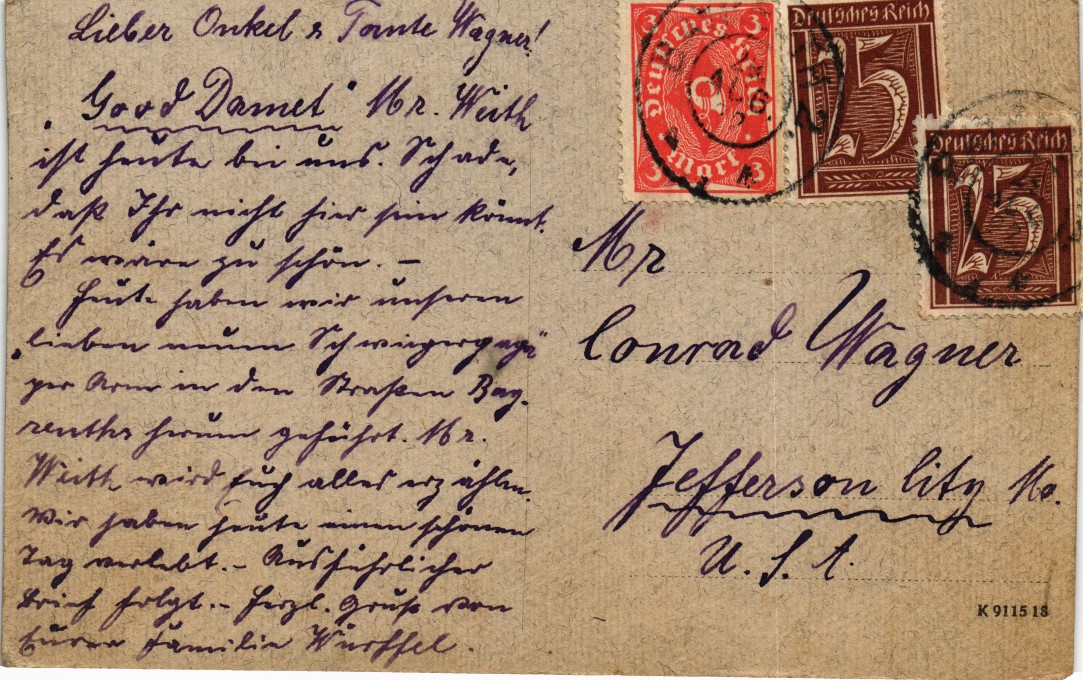 Lieber Onkel & Tante Wagner!
"Good Damet" Mr. Weith
ist heute bei uns. Schade,
daß Ihr nicht hier sein könnt.
Es wäre zu schön. –
Heute haben wir unseren
"lieben neuen
per Arm in den Straßen Bay-
reuths herum geführt. Mr.
Weith wird Euch alles erzählen.
Wir haben heute einen schönen
Tag verlebt. – Ausführlicher
Brief folgt. – Herzl. Gruß von
Eurer Familie Würffel.
3 Deutsches Reich 3
3 Mark 3
Deutsches Reich
75
Deutsches Reich
75
Mr
Conrad Wagner
Jefferson City Mo.
U. S. A.
K 9115 18